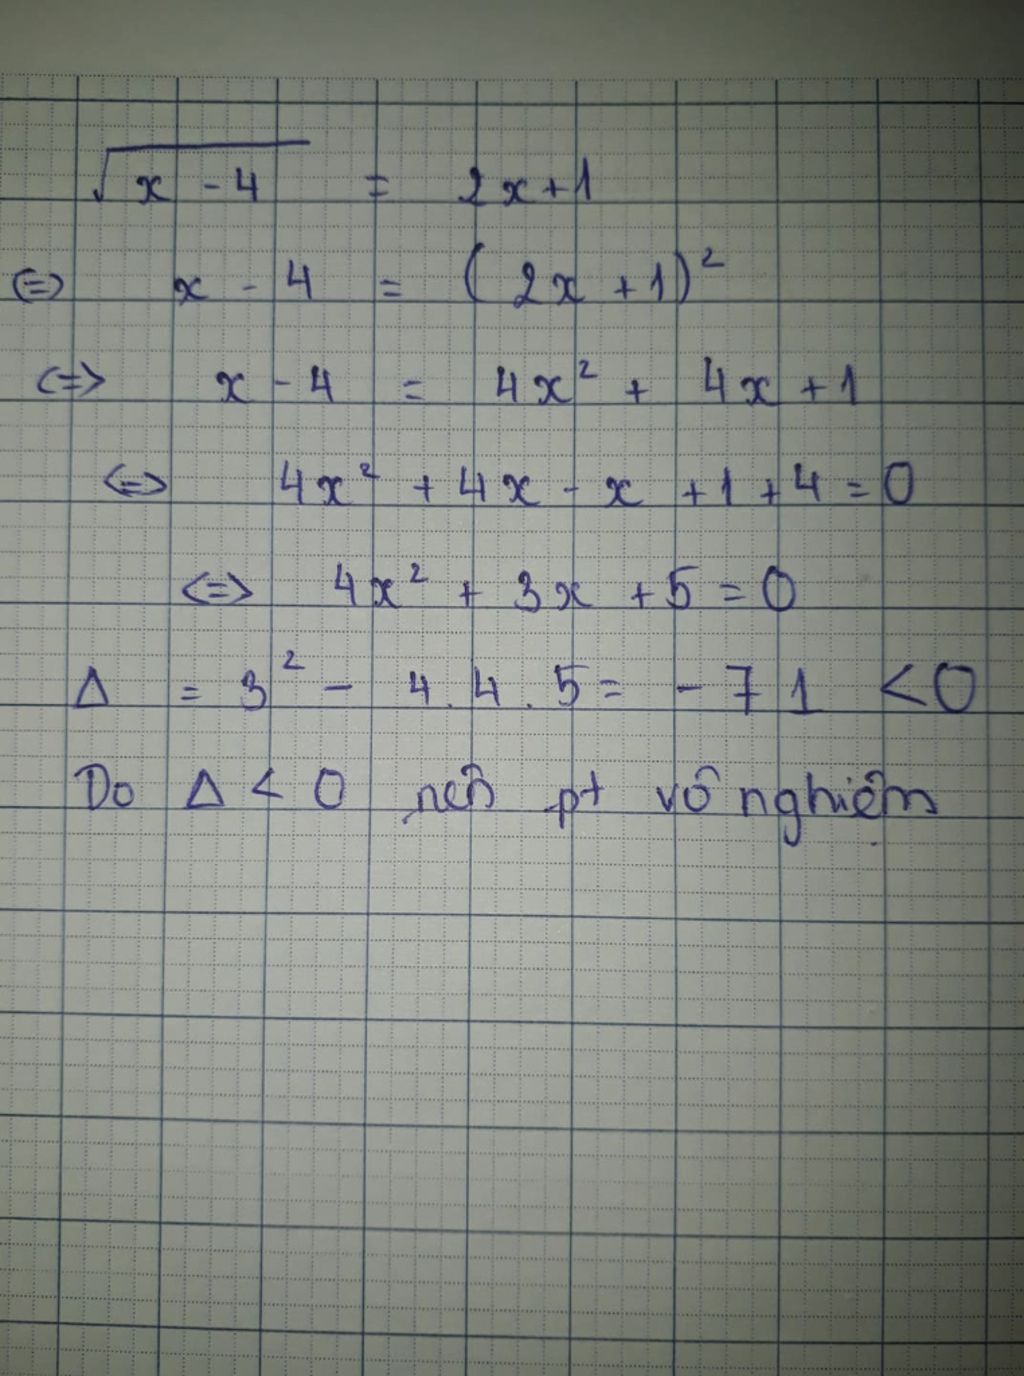 √(x - 4) = 2x + 1
<=> x - 4 = (2x + 1)²
<=> x - 4 = 4x² + 4x + 1
<=> 4x² + 4x - x + 1 + 4 = 0
<=> 4x² + 3x + 5 = 0
Δ = 3² - 4.4.5 = -71 < 0
Do Δ < 0 nên pt vô nghiệm